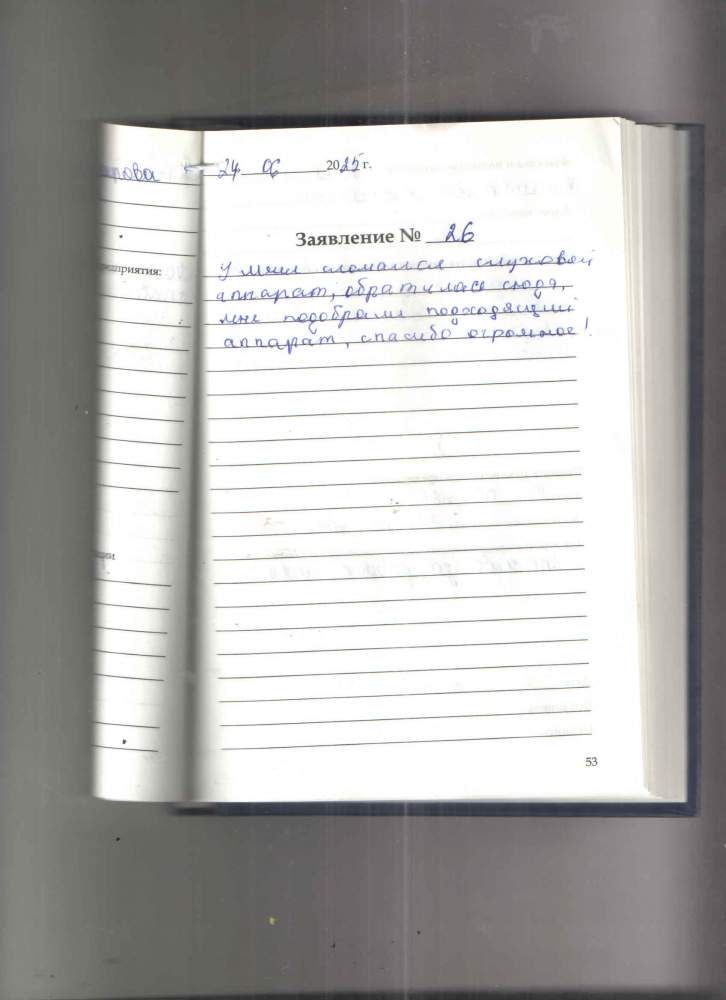 24 06 2025 г.
Заявление № 26
У меня сломался слуховой
аппарат, обратилась сюда,
мне подобрали подходящий
аппарат, спасибо огромное!
53